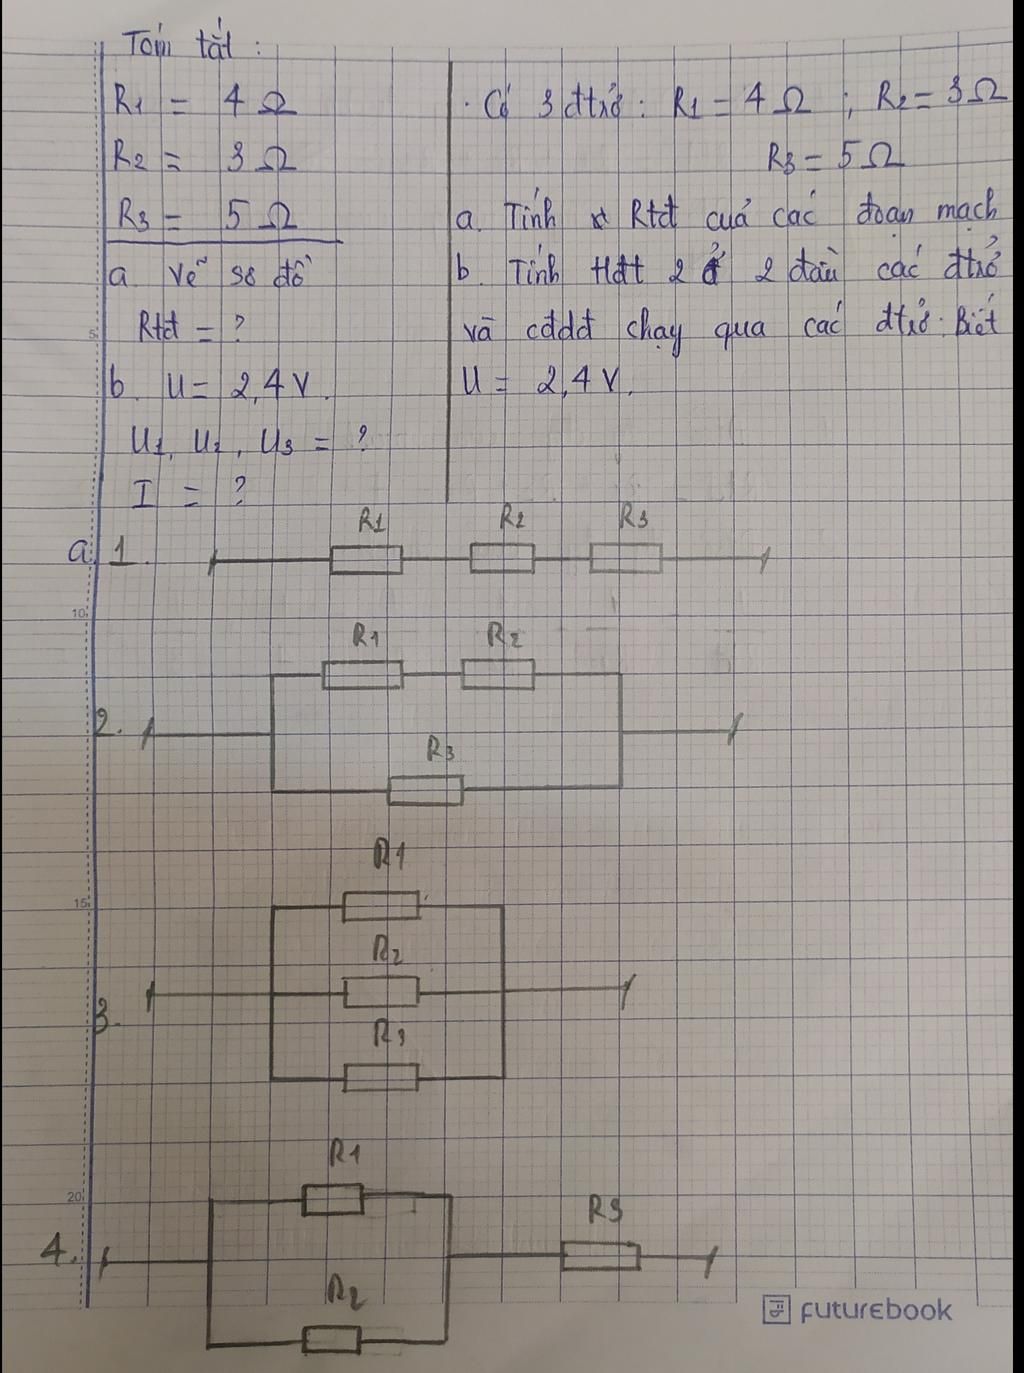 Tóm tắt :
R1 = 4 Ω
R2 = 3 Ω
R3 = 5 Ω
a. Vẽ sơ đồ
Rtđ = ?
b. U = 2,4 V.
U1, U2, U3 = ?
I = ?
. Có 3 đtrở : R1 = 4 Ω ; R2 = 3 Ω
R3 = 5 Ω
a. Tính Rtđ của các đoạn mạch
b. Tính Hđt 2 ở 2 đầu các đtrở
và cđdđ chạy qua các đtrở. Biết
U = 2,4 V.
a. 1.
R1 R2 R3
R1 R2
2.
R3
R1
R2
3.
R3
R1
R3
4.
R2
5
10
15
20
futurebook